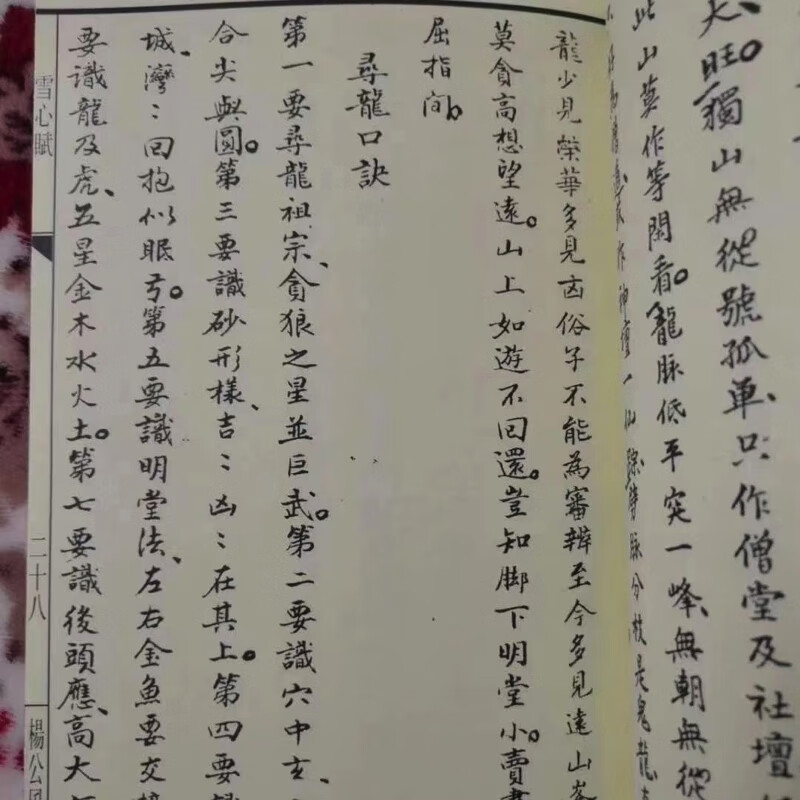 大旺。獨山無從號孤單、只作僧堂及社壇
此山莫作等閑看。龍脉低平突一峰、無朝無從
龍少見榮華多見凶俗子不能為審辨至今多見遠山峯
莫貪高想望遠。山上如遊不回還。豈知脚下明堂小。賣
屈指間。
尋龍口訣
第一要尋龍祖宗、貪狼之星並巨武。第二要識穴中玄、
合尖與圓。第三要識砂形樣、吉：凶：在其上。第四要
城、灣：回抱似眠弓。第五要識明堂法、左右金魚要交
要識龍及虎、五星金木水火土。第七要識後頭應、高大
雪心賦
二十八
楊公